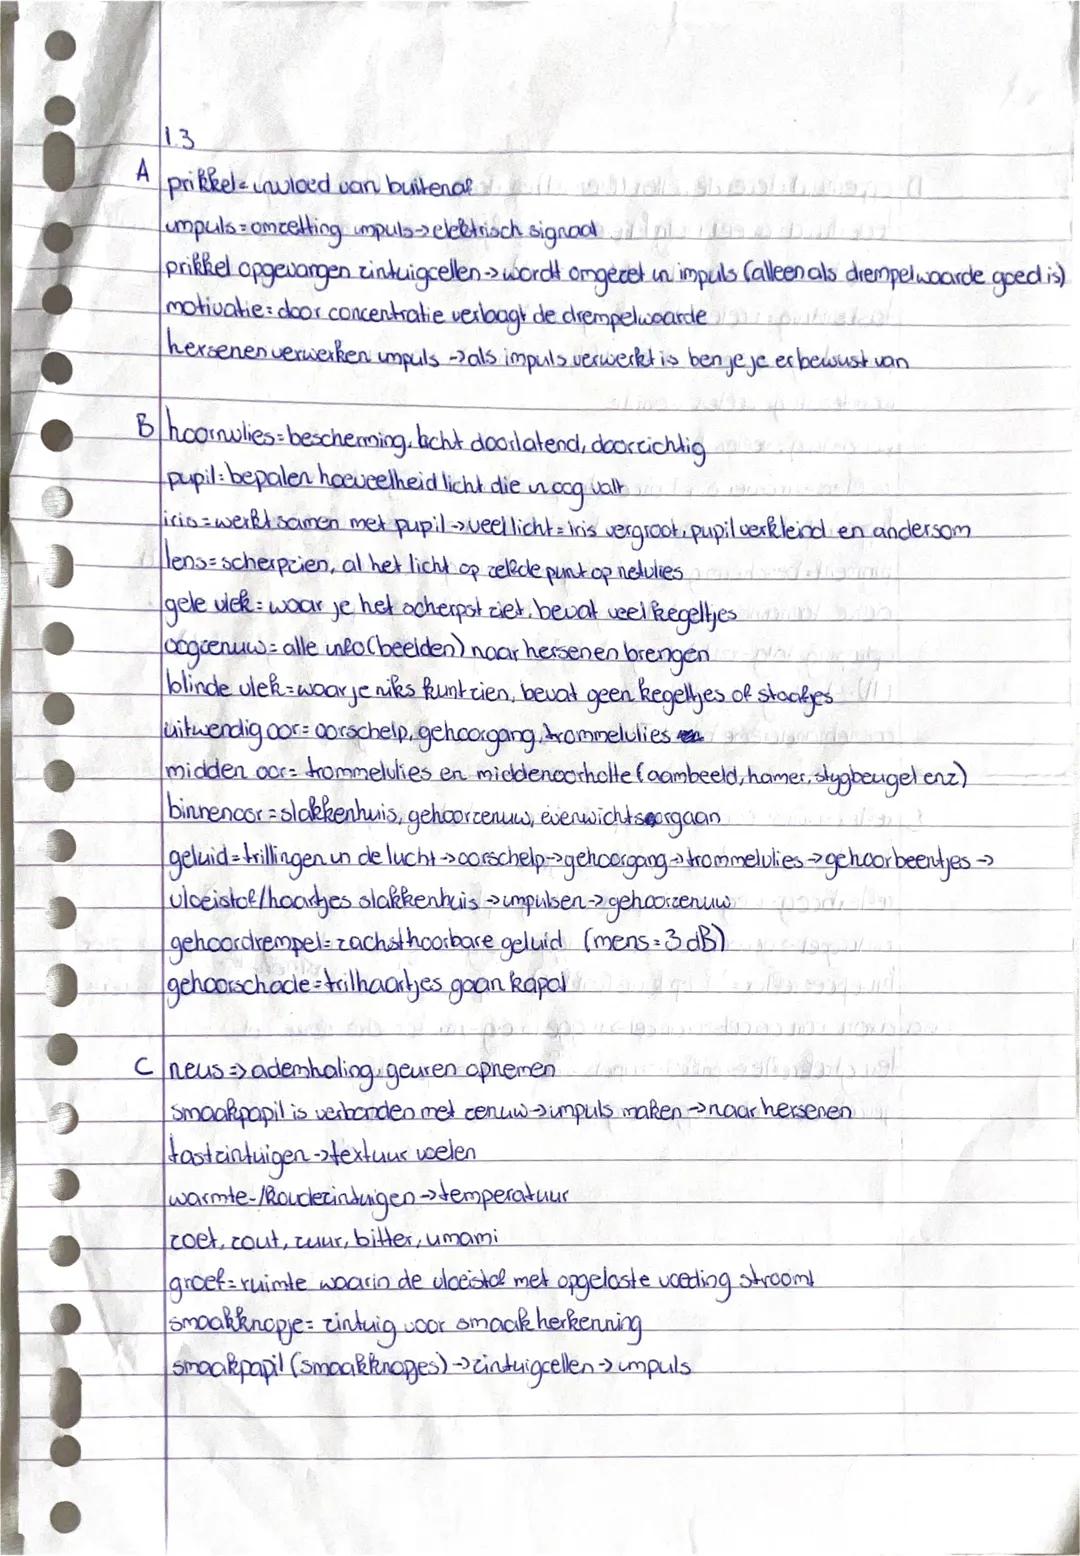 1.3
A prikkel = invloed van buitenaf
impuls = omzetting impuls -> elektrisch signaal
prikkel opgevangen zintuigcellen -> wordt omgezet in impuls (alleen als drempelwaarde goed is)
motivatie = door concentratie verlaagt de drempelwaarde
hersenen verwerken impuls -> als impuls verwerkt is ben je je er bewust van
B hoornvlies = bescherming, licht doorlatend, doorzichtig
pupil = bepalen hoeveelheid licht die in oog valt
iris = werkt samen met pupil -> veel licht = iris vergroot, pupil verkleind en andersom
lens = scherpzien, al het licht op zelfde punt op netvlies
gele vlek = waar je het scherpst ziet, bevat veel kegeltjes
oogzenuw = alle info (beelden) naar hersenen brengen
blinde vlek = waar je niks kunt zien, bevat geen kegeltjes of staafjes
uitwendig oor = oorschelp, gehoorgang, trommelvlies
midden oor = trommelvlies en middenoorholte (aambeeld, hamer, stijgbeugel enz)
binnenoor = slakkenhuis, gehoorzenuw, evenwichtsorgaan
geluid = trillingen in de lucht -> oorschelp -> gehoorgang -> trommelvlies -> gehoorbeentjes ->
vloeistof/haartjes slakkenhuis -> impulsen -> gehoorzenuw
gehoordrempel = zachtst hoorbare geluid (mens = 3 dB)
gehoorschade = trilhaartjes gaan kapot
C neus => ademhaling, geuren opnemen
smaakpapil is verbonden met zenuw -> impuls maken -> naar hersenen
tastzintuigen -> textuur voelen
warmte-/koudezintuigen -> temperatuur
zoet, zout, zuur, bitter, umami
groef = ruimte waarin de vloeistof met opgeloste voeding stroomt
smaakknopje = zintuig voor smaak herkenning
smaakpapil (smaakknopjes) -> zintuigcellen -> impuls